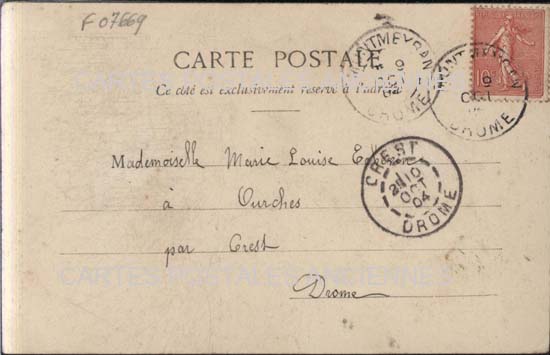 F 07669
CARTE POSTALE
Ce côté est exclusivement réservé à l'adresse
MONTMEYRAN
9
OCT
04
DROME
MONTMEYRAN
9
OCT
DROME
10
Mademoiselle Marie Louise
à Ourches
par Crest
Drome
CREST
10
OCT
04
DROME
CARTES POSTALES ANCIENNES
CARTES POSTALES ANCIENNES